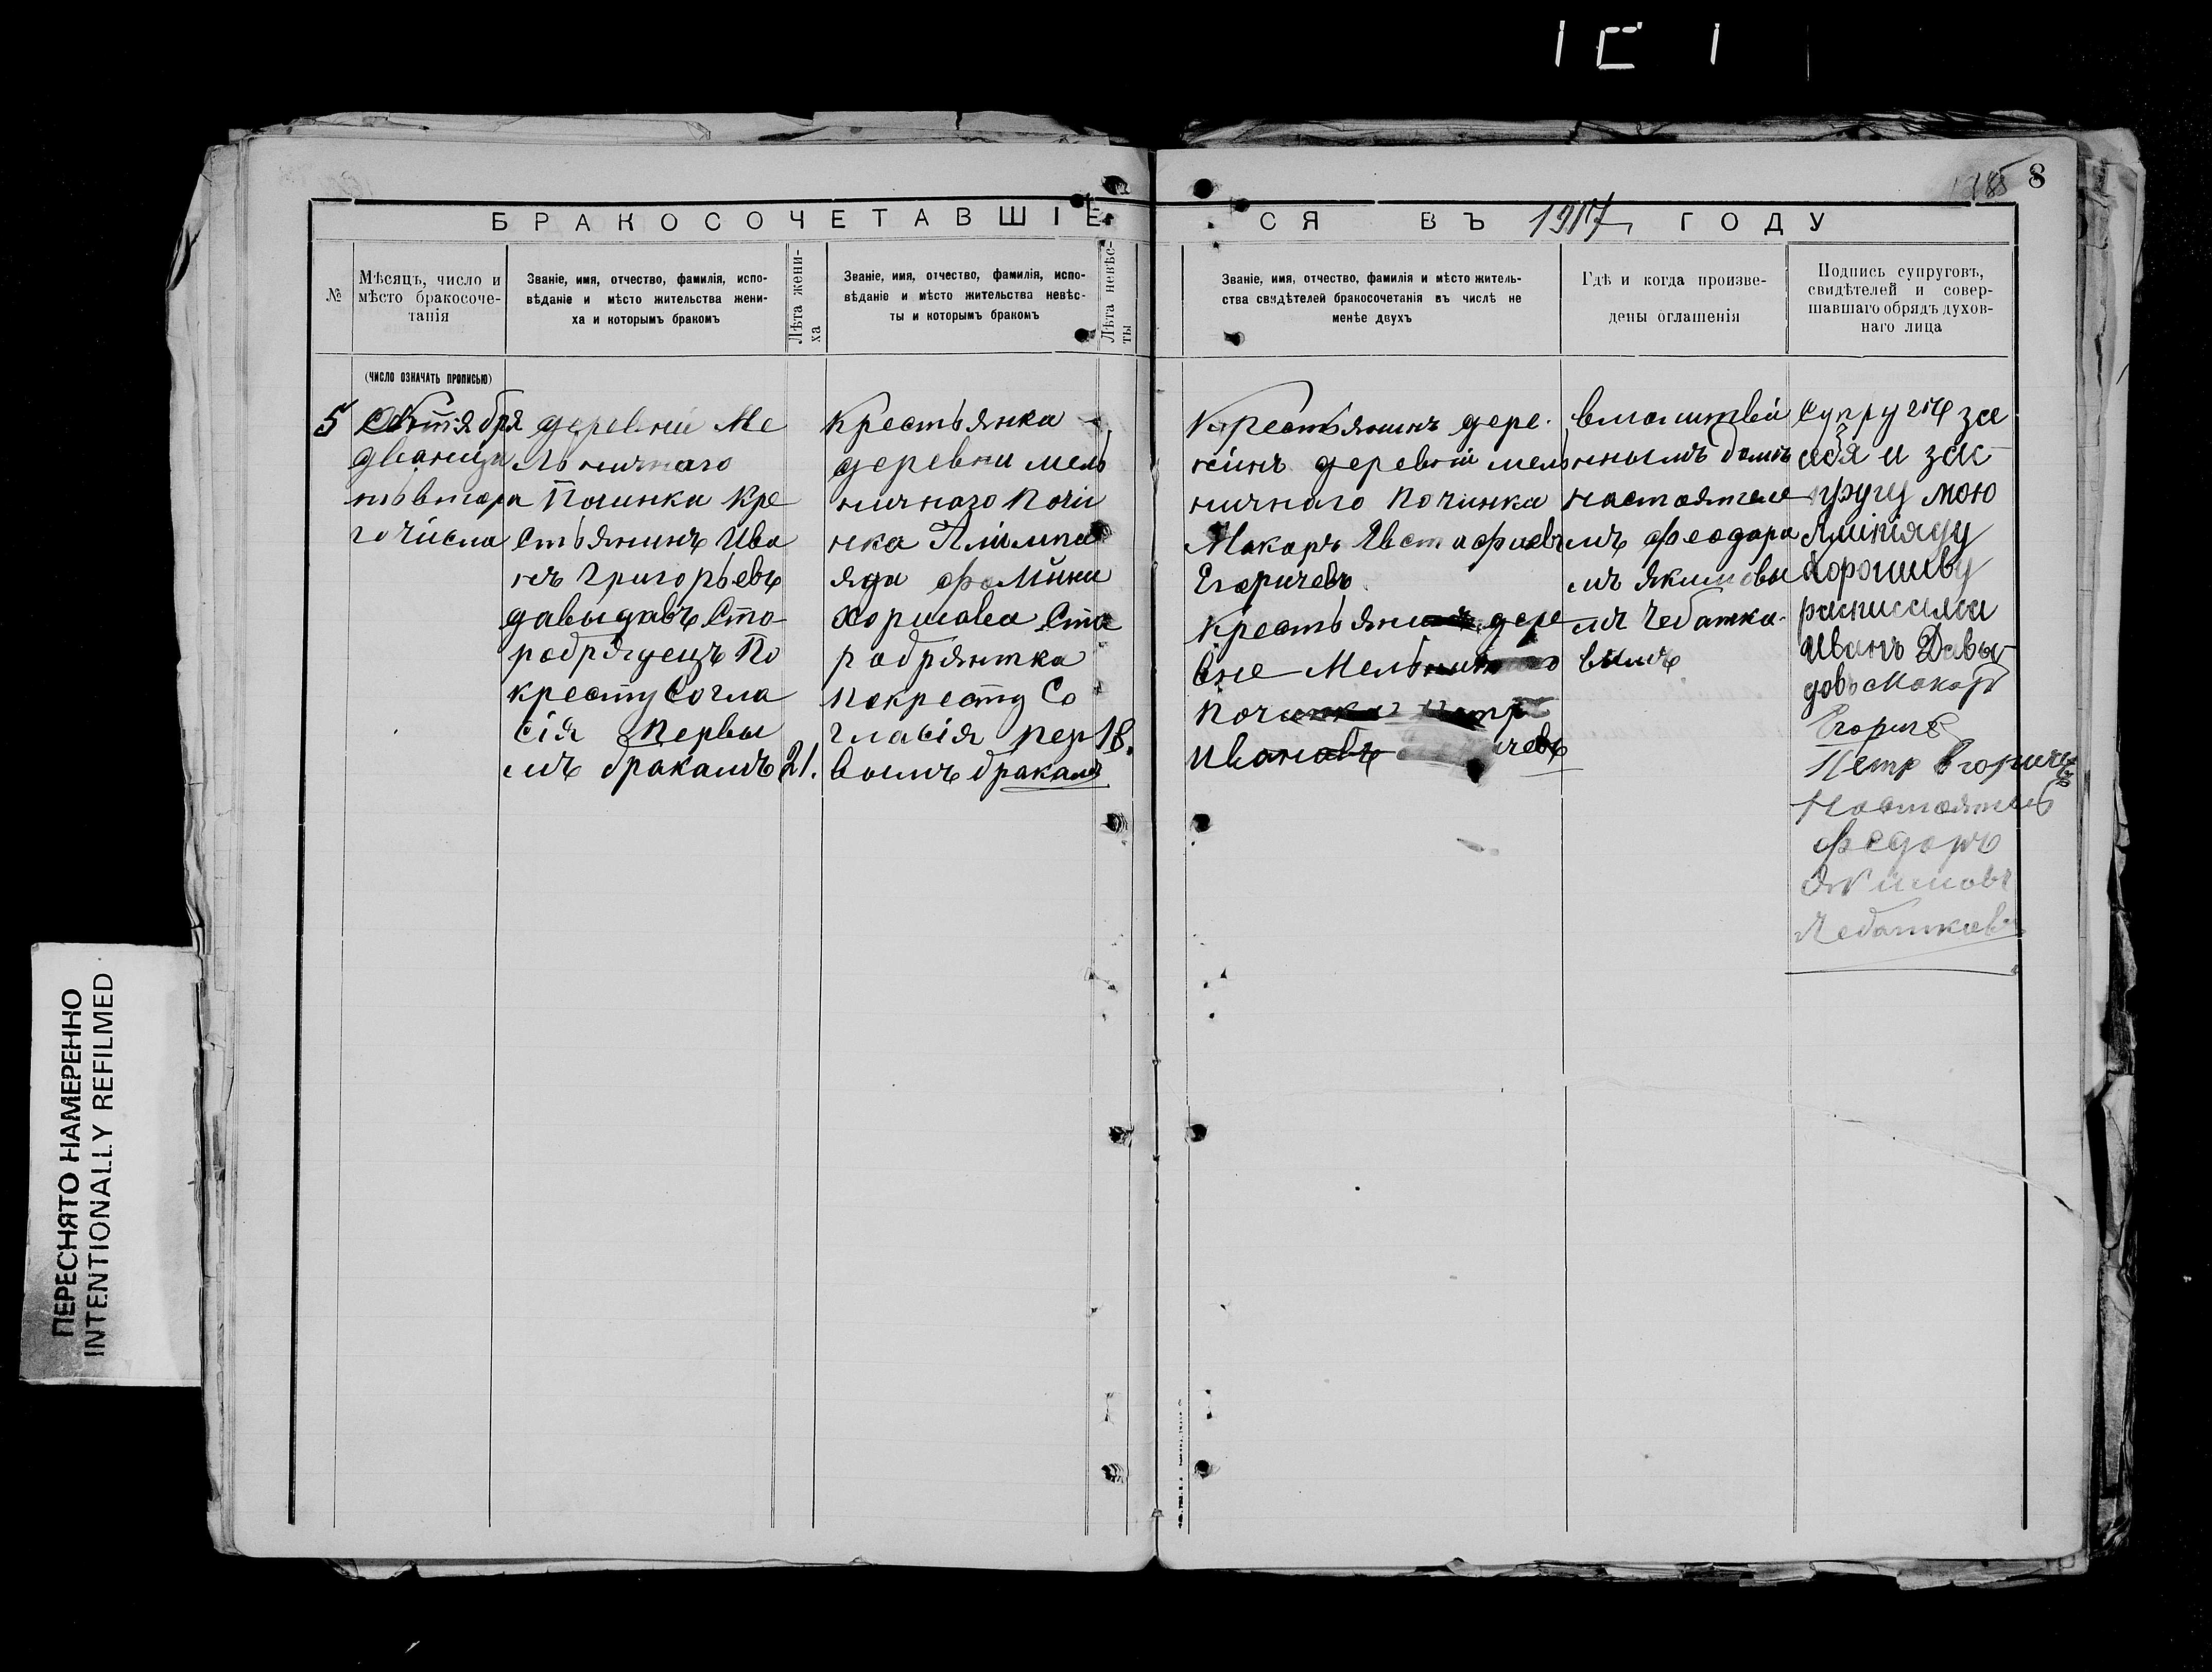 8
БРАКОСОЧЕТАВШІЕСЯ ВЪ 1917 ГОДУ
№
Мѣсяцъ, число и
мѣсто бракосоче-
танія
Званіе, имя, отчество, фамилія, испо-
вѣданіе и мѣсто жительства жени-
ха и которымъ бракомъ
Лѣта жени-
ха
Званіе, имя, отчество, фамилія, испо-
вѣданіе и мѣсто жительства невѣс-
ты и которымъ бракомъ
Лѣта невѣс-
ты
Званіе, имя, отчество, фамилія и мѣсто житель-
ства свидѣтелей бракосочетанія въ числѣ не
менѣе двухъ
Гдѣ и когда произве-
дены оглашенія
Подпись супруговъ,
свидѣтелей и совер-
шавшаго обрядъ духов-
наго лица
(число означать прописью)
5
дванца
товтора
го числа
деревни Ме
льничнаго
Починка Кре
стьянинъ Ива
нъ Григорьевъ
давыдавъ Ста
робрядецъ По
кресту Согла
сія Первы
мъ бракамъ
21.
Крестьянка
деревни мель
ничнаго Почи
нка
яда Фомина
Хоршова Ста
робрянтка
Покресту Со
гласія пер
вымъ бракамъ
18.
Крестьянинъ дере
деревни мель
ничнаго Починка
Макаръ Евстафиевъ
Егоричевъ
Крестьянинъ дере
вне
Починка Петръ
Ивановъ
вмолитвен
нымъ домѣ
настоятеле
мъ Феодора
мъ Якимовы
мъ Чебатка
вымъ
Супруги за
себя и за
мою
Хорошеву
росписался
Иванъ Давы
довъ Макаръ
Егориче
Петръ Егоричевъ
Настоятель
Федоръ
Якимовъ
Чебатковъ
ПЕРЕСНЯТО НАМЕРЕННО
INTENTIONALLY REFILMED